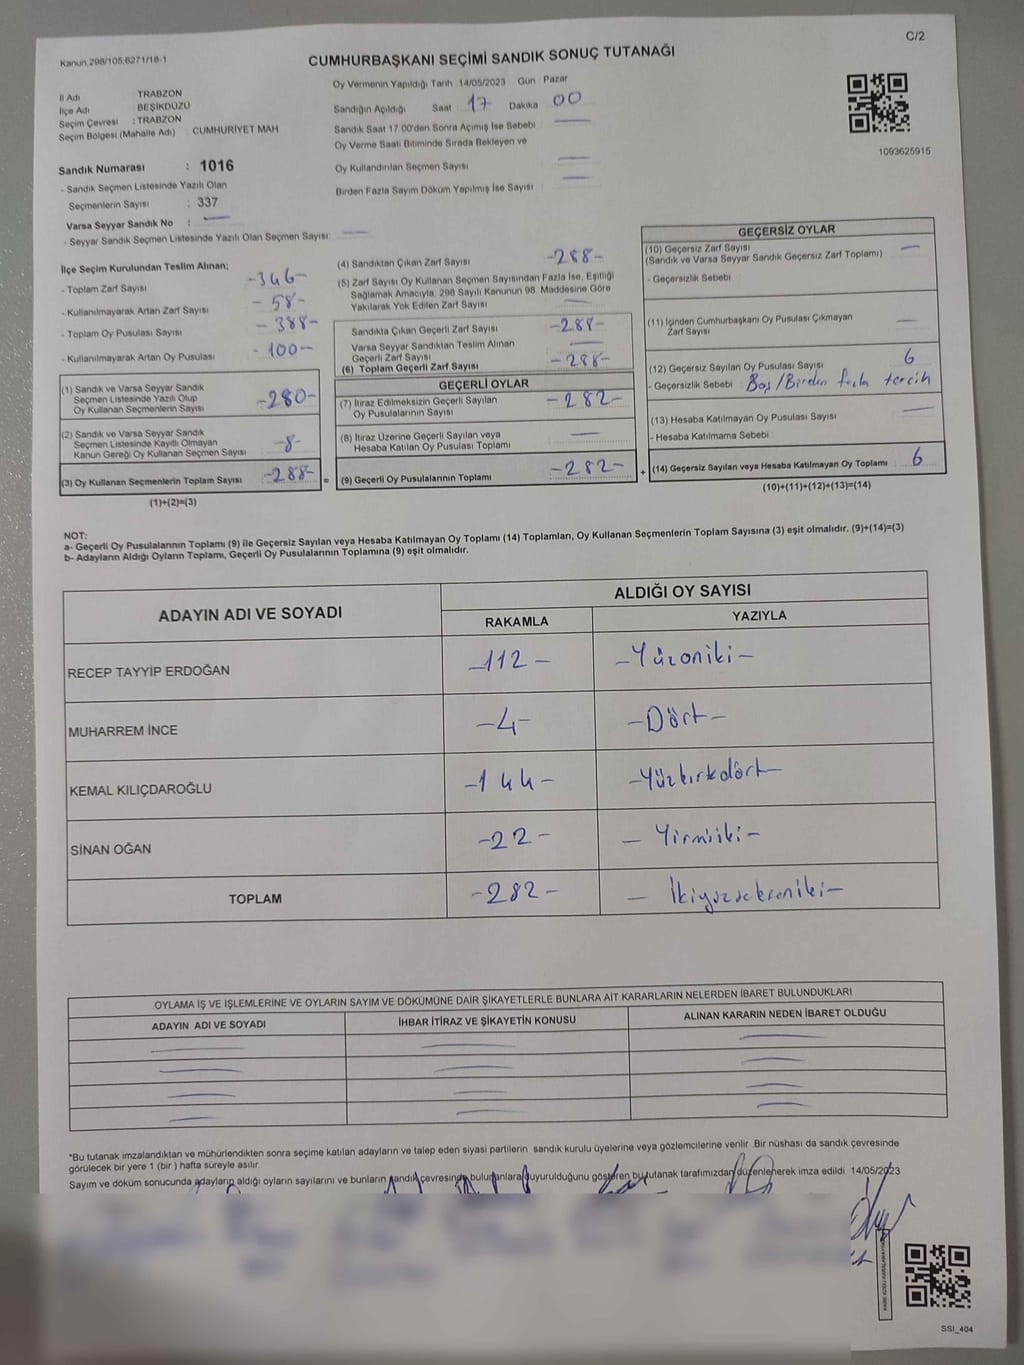 C/2
Kanun,298/105,6271/18-1
CUMHURBAŞKANI SEÇİMİ SANDIK SONUÇ TUTANAĞI
İl Adı TRABZON
İlçe Adı BEŞİKDÜZÜ
Seçim Çevresi : TRABZON
Seçim Bölgesi (Mahalle Adı) : CUMHURİYET MAH
Sandık Numarası : 1016
- Sandık Seçmen Listesinde Yazılı Olan
Seçmenlerin Sayısı : 337
Varsa Seyyar Sandık No :
- Seyyar Sandık Seçmen Listesinde Yazılı Olan Seçmen Sayısı:
Oy Vermenin Yapıldığı Tarih 14/05/2023 Gün Pazar
Sandığın Açıldığı Saat 17 Dakika 00
Sandık Saat 17.00'den Sonra Açımış İse Sebebi
Oy Verme Saati Bitiminde Sırada Bekleyen ve
Oy Kullandırılan Seçmen Sayısı
Birden Fazla Sayım Döküm Yapılmış İse Sayısı
1093625915
İlçe Seçim Kurulundan Teslim Alınan;
- Toplam Zarf Sayısı -346-
- Kullanılmayarak Artan Zarf Sayısı -58-
- Toplam Oy Pusulası Sayısı -388-
- Kullanılmayarak Artan Oy Pusulası -100-
(1) Sandık ve Varsa Seyyar Sandık
Seçmen Listesinde Yazılı Olup
Oy Kullanan Seçmenlerin Sayısı -280-
(2) Sandık ve Varsa Seyyar Sandık
Seçmen Listesinde Kayıtlı Olmayan
Kanun Gereği Oy Kullanan Seçmen Sayısı -8-
(3) Oy Kullanan Seçmenlerin Toplam Sayısı -288- =
(1)+(2)=(3)
(4) Sandıktan Çıkan Zarf Sayısı -288-
(5) Zarf Sayısı Oy Kullanan Seçmen Sayısından Fazla İse, Eşitliği
Sağlamak Amacıyla, 298 Sayılı Kanunun 98. Maddesine Göre
Yakılarak Yok Edilen Zarf Sayısı
Sandıkta Çıkan Geçerli Zarf Sayısı -288-
Varsa Seyyar Sandıktan Teslim Alınan
Geçerli Zarf Sayısı
(6) Toplam Geçerli Zarf Sayısı -288-
GEÇERLİ OYLAR
(7) İtiraz Edilmeksizin Geçerli Sayılan
Oy Pusulalarının Sayısı -282-
(8) İtiraz Üzerine Geçerli Sayılan veya
Hesaba Katılan Oy Pusulası Toplamı
(9) Geçerli Oy Pusulalarının Toplamı -282- +
GEÇERSİZ OYLAR
(10) Geçersiz Zarf Sayısı
(Sandık ve Varsa Seyyar Sandık Geçersiz Zarf Toplamı)
- Geçersizlik Sebebi
(11) İçinden Cumhurbaşkanı Oy Pusulası Çıkmayan
Zarf Sayısı
(12) Geçersiz Sayılan Oy Pusulası Sayısı 6
- Geçersizlik Sebebi Boş/Birden fazla tercih
(13) Hesaba Katılmayan Oy Pusulası Sayısı
- Hesaba Katılmama Sebebi
(14) Geçersiz Sayılan veya Hesaba Katılmayan Oy Toplamı 6
(10)+(11)+(12)+(13)=(14)
NOT:
a- Geçerli Oy Pusulalarının Toplamı (9) ile Geçersiz Sayılan veya Hesaba Katılmayan Oy Toplamı (14) Toplamları, Oy Kullanan Seçmenlerin Toplam Sayısına (3) eşit olmalıdır. (9)+(14)=(3)
b- Adayların Aldığı Oyların Toplamı, Geçerli Oy Pusulalarının Toplamına (9) eşit olmalıdır.
ADAYIN ADI VE SOYADI ALDIĞI OY SAYISI
RAKAMLA YAZIYLA
RECEP TAYYİP ERDOĞAN -112- -Yüzoniki-
MUHARREM İNCE -4- -Dört-
KEMAL KILIÇDAROĞLU -144- -Yüzkırkdört-
SİNAN OĞAN -22- - Yirmiiki-
TOPLAM -282- - İkiyüzsekseniki-
OYLAMA İŞ VE İŞLEMLERİNE VE OYLARIN SAYIM VE DÖKÜMÜNE DAİR ŞİKAYETLERLE BUNLARA AİT KARARLARIN NELERDEN İBARET BULUNDUKLARI
ADAYIN ADI VE SOYADI İHBAR İTİRAZ VE ŞİKAYETİN KONUSU ALINAN KARARIN NEDEN İBARET OLDUĞU
*Bu tutanak imzalandıktan ve mühürlendikten sonra seçime katılan adayların ve talep eden siyasi partilerin sandık kurulu üyelerine veya gözlemcilerine verilir .Bir nüshası da sandık çevresinde
görülecek bir yere 1 (bir ) hafta süreyle asılır.
Sayım ve döküm sonucunda adayların aldığı oyların sayılarını ve bunların sandık çevresinde bulunanlara duyurulduğunu gösteren bu tutanak tarafımızdan düzenlenerek imza edildi. 14/05/2023
SSI_404